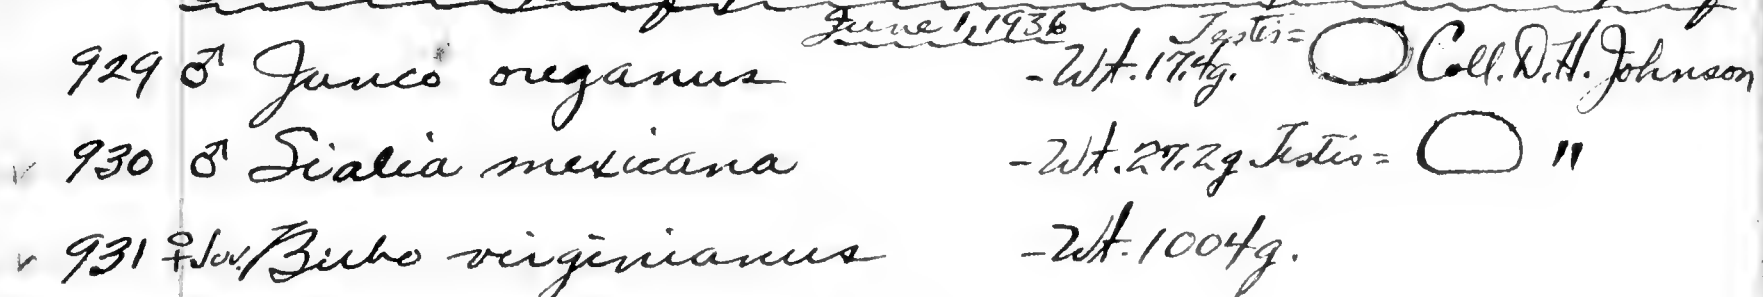 June 1, 1936
929 ♂ Junco oreganus -Wt. 17.4g. Testis= Coll. D.H. Johnson
✓ 930 ♂ Sialia mexicana -Wt. 27.2g Testis= "
✓ 931 ♀Juv. Bubo virginianus -Wt. 1004g.